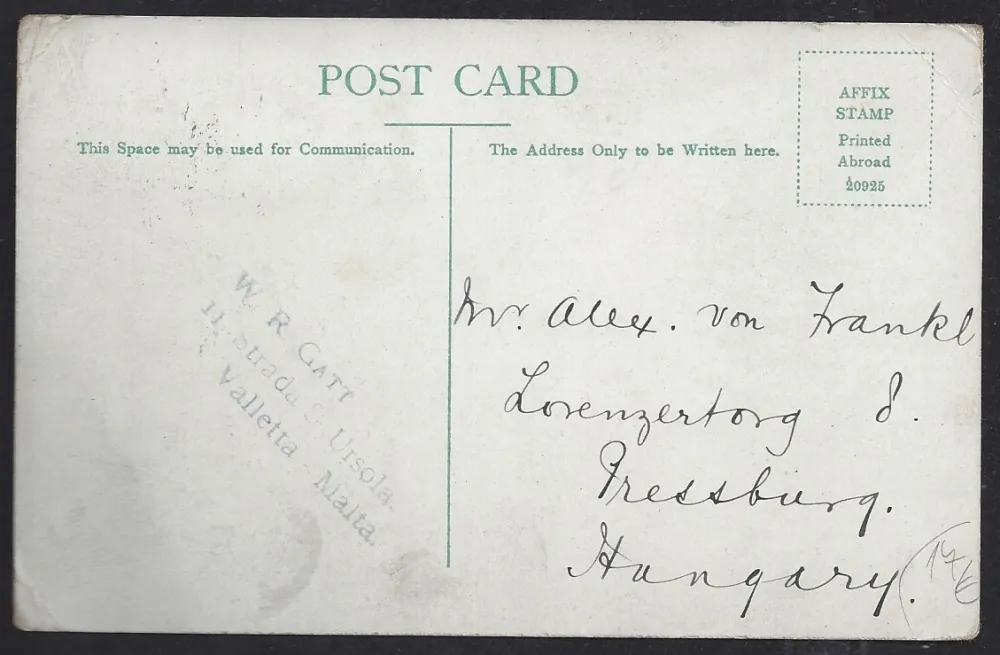 POST CARD
This Space may be used for Communication.
The Address Only to be Written here.
AFFIX
STAMP
Printed
Abroad
20925
W. R. GATT
11, Strada S. Ursola.
Valletta Malta.
Mr. Alex. von Frankl
Lorenzertorg 8.
Pressburg.
Hungary.